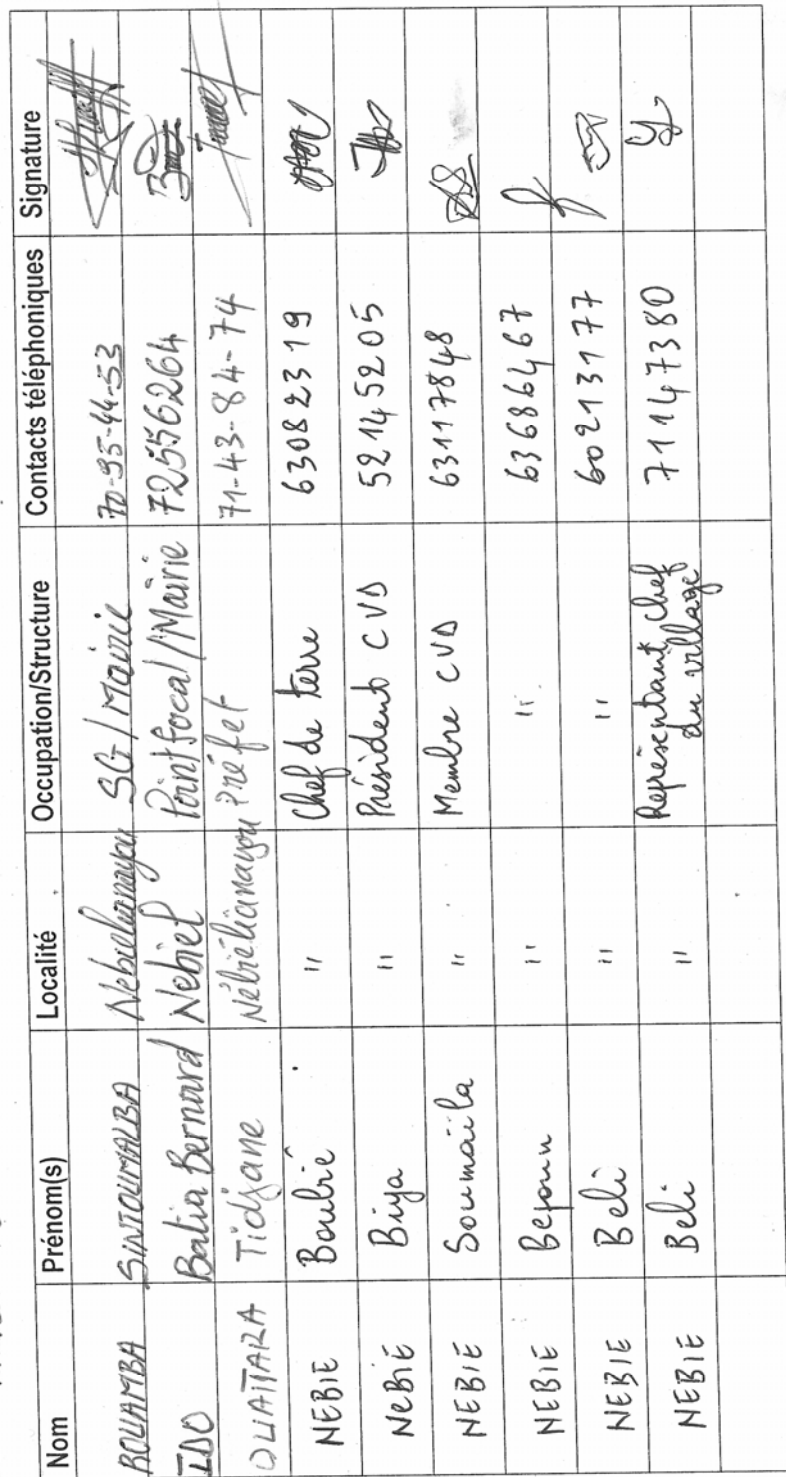 Nom Prénom(s) Localité Occupation/Structure Contacts téléphoniques Signature
ROUAMBA SINTOUMALBA SG/Mairie 70-95-44-53
IDO Batia Bernard Nebiel Point focal/Mairie 72556264
OUATTARA Tidjane Nébiélianayou Préfet 71-43-84-74
NEBIE Boubié " Chef de terre 63082319
NEBIE Biya " Président CVD 52145205
NEBIE Soumaïla " Membre CVD 63117848
NEBIE " " 63686467
NEBIE Beli " " 60213177
NEBIE Beli " Représentant chef
du village 71147380